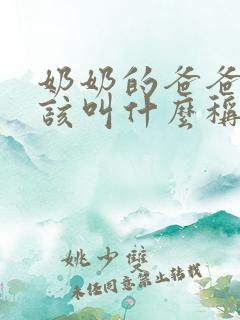 奶奶的爸爸
该叫什麼稱
姚少雙
未任同意禁止转载